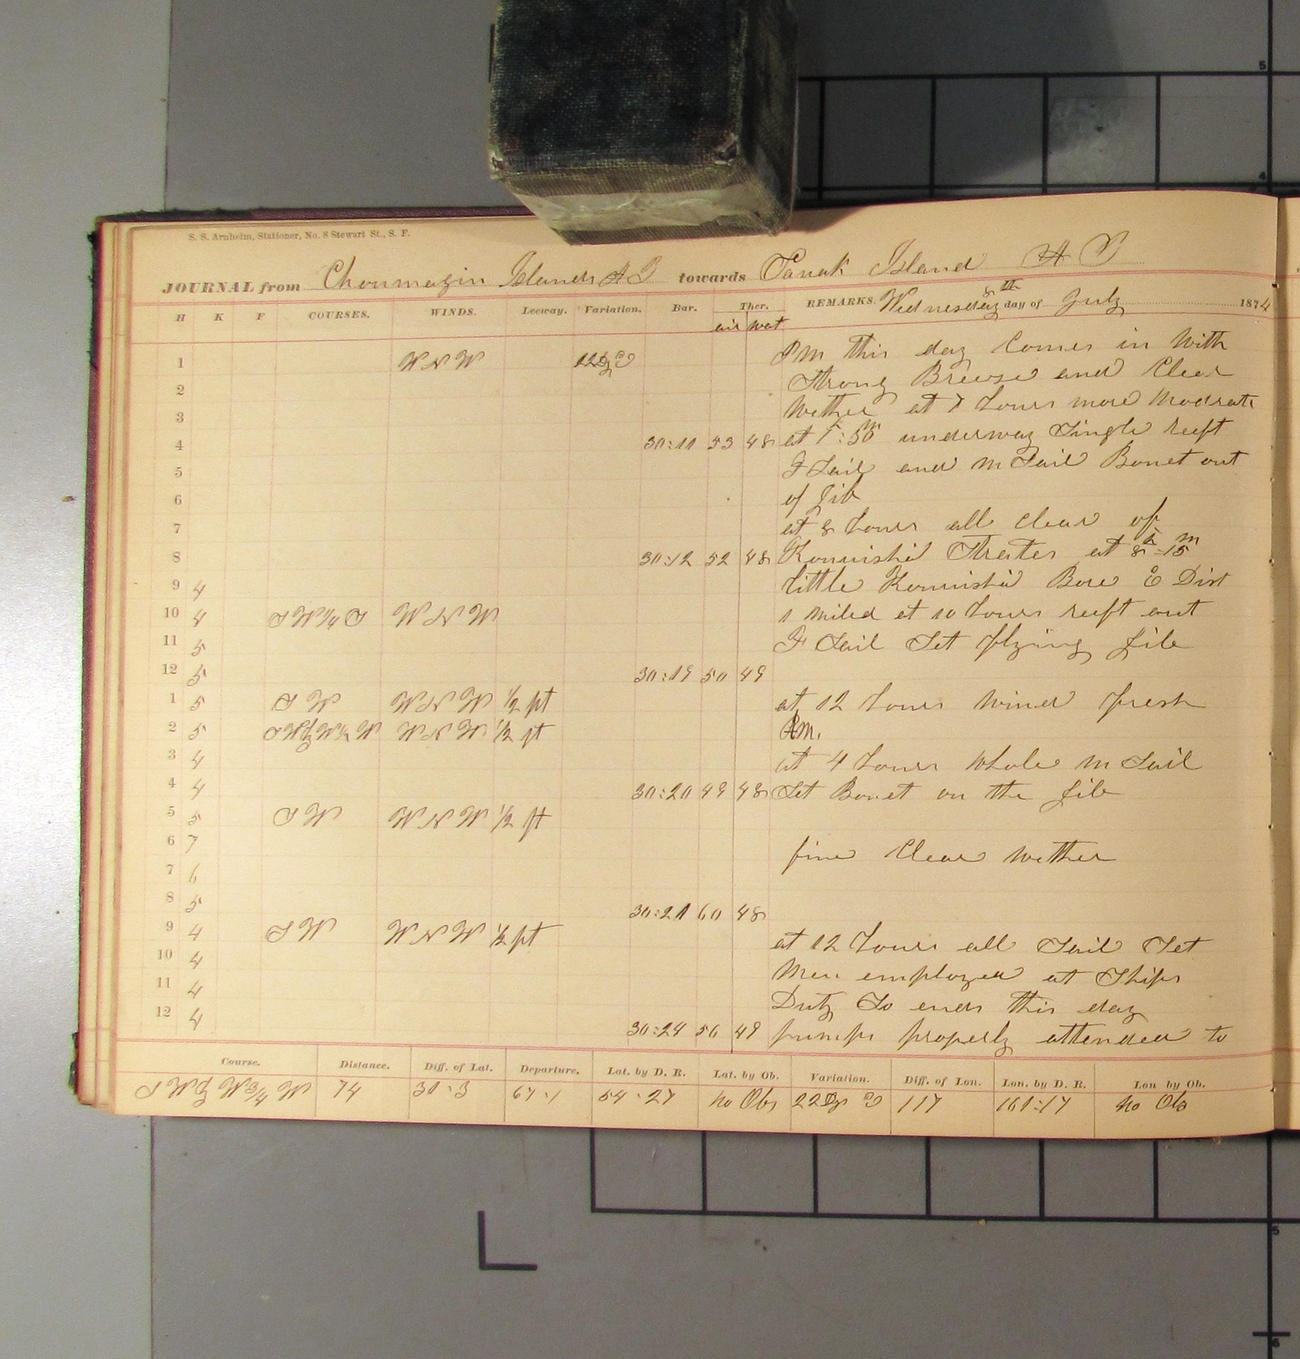 S. S. Arnheim, Stationer, No. 8 Stewart St., S. F.
JOURNAL from Choumagin Islands A T towards Sanak Island A T
H K F COURSES. WINDS. Leeway. Variation. Bar. Ther. REMARKS. Wednesday 8th day of July 1874
air wat
1 WNW 22Dg E PM this day Comes in With
2 Strong Breeze and Clear
3 Wether at 7 hours more Modrate
4 30:11 53 48 at 7:50m underway Single reeft
5 F Sail and M Sail Bonet out
6 of Jib
7 at 8 hours all clear of
8 30:12 52 48 Straites at 8h:15m
9 4 little Bore E Dist
10 4 SW1/4S WNW 1 miled at 10 hours reeft out
11 5 F Sail Set flying Jib
12 5 30:19 50 49
1 5 SW WNW 1/2 pt at 12 hours Wind fresh
2 5 WNW 1/2 pt AM.
3 4 at 4 hours Whole M Sail
4 4 30:20 49 48 Set Bonet on the Jib
5 5 SW WNW 1/2 pt
6 7 fine Clear Wether
7 6
8 5 30:21 60 48
9 4 SW WNW 1/2 pt at 12 hours all Sail Set
10 4 Men employed at Ships
11 4 Duty So ends this day
12 4 30:24 56 49 pumps properly attended to
Course. Distance. Diff. of Lat. Departure. Lat. by D. R. Lat. by Ob. Variation. Diff. of Lon. Lon. by D. R. Lon by Ob.
SWby W3/4 W 74 31:3 67:1 54:27 No Obs 22Dg E 117 161:17 No Ob